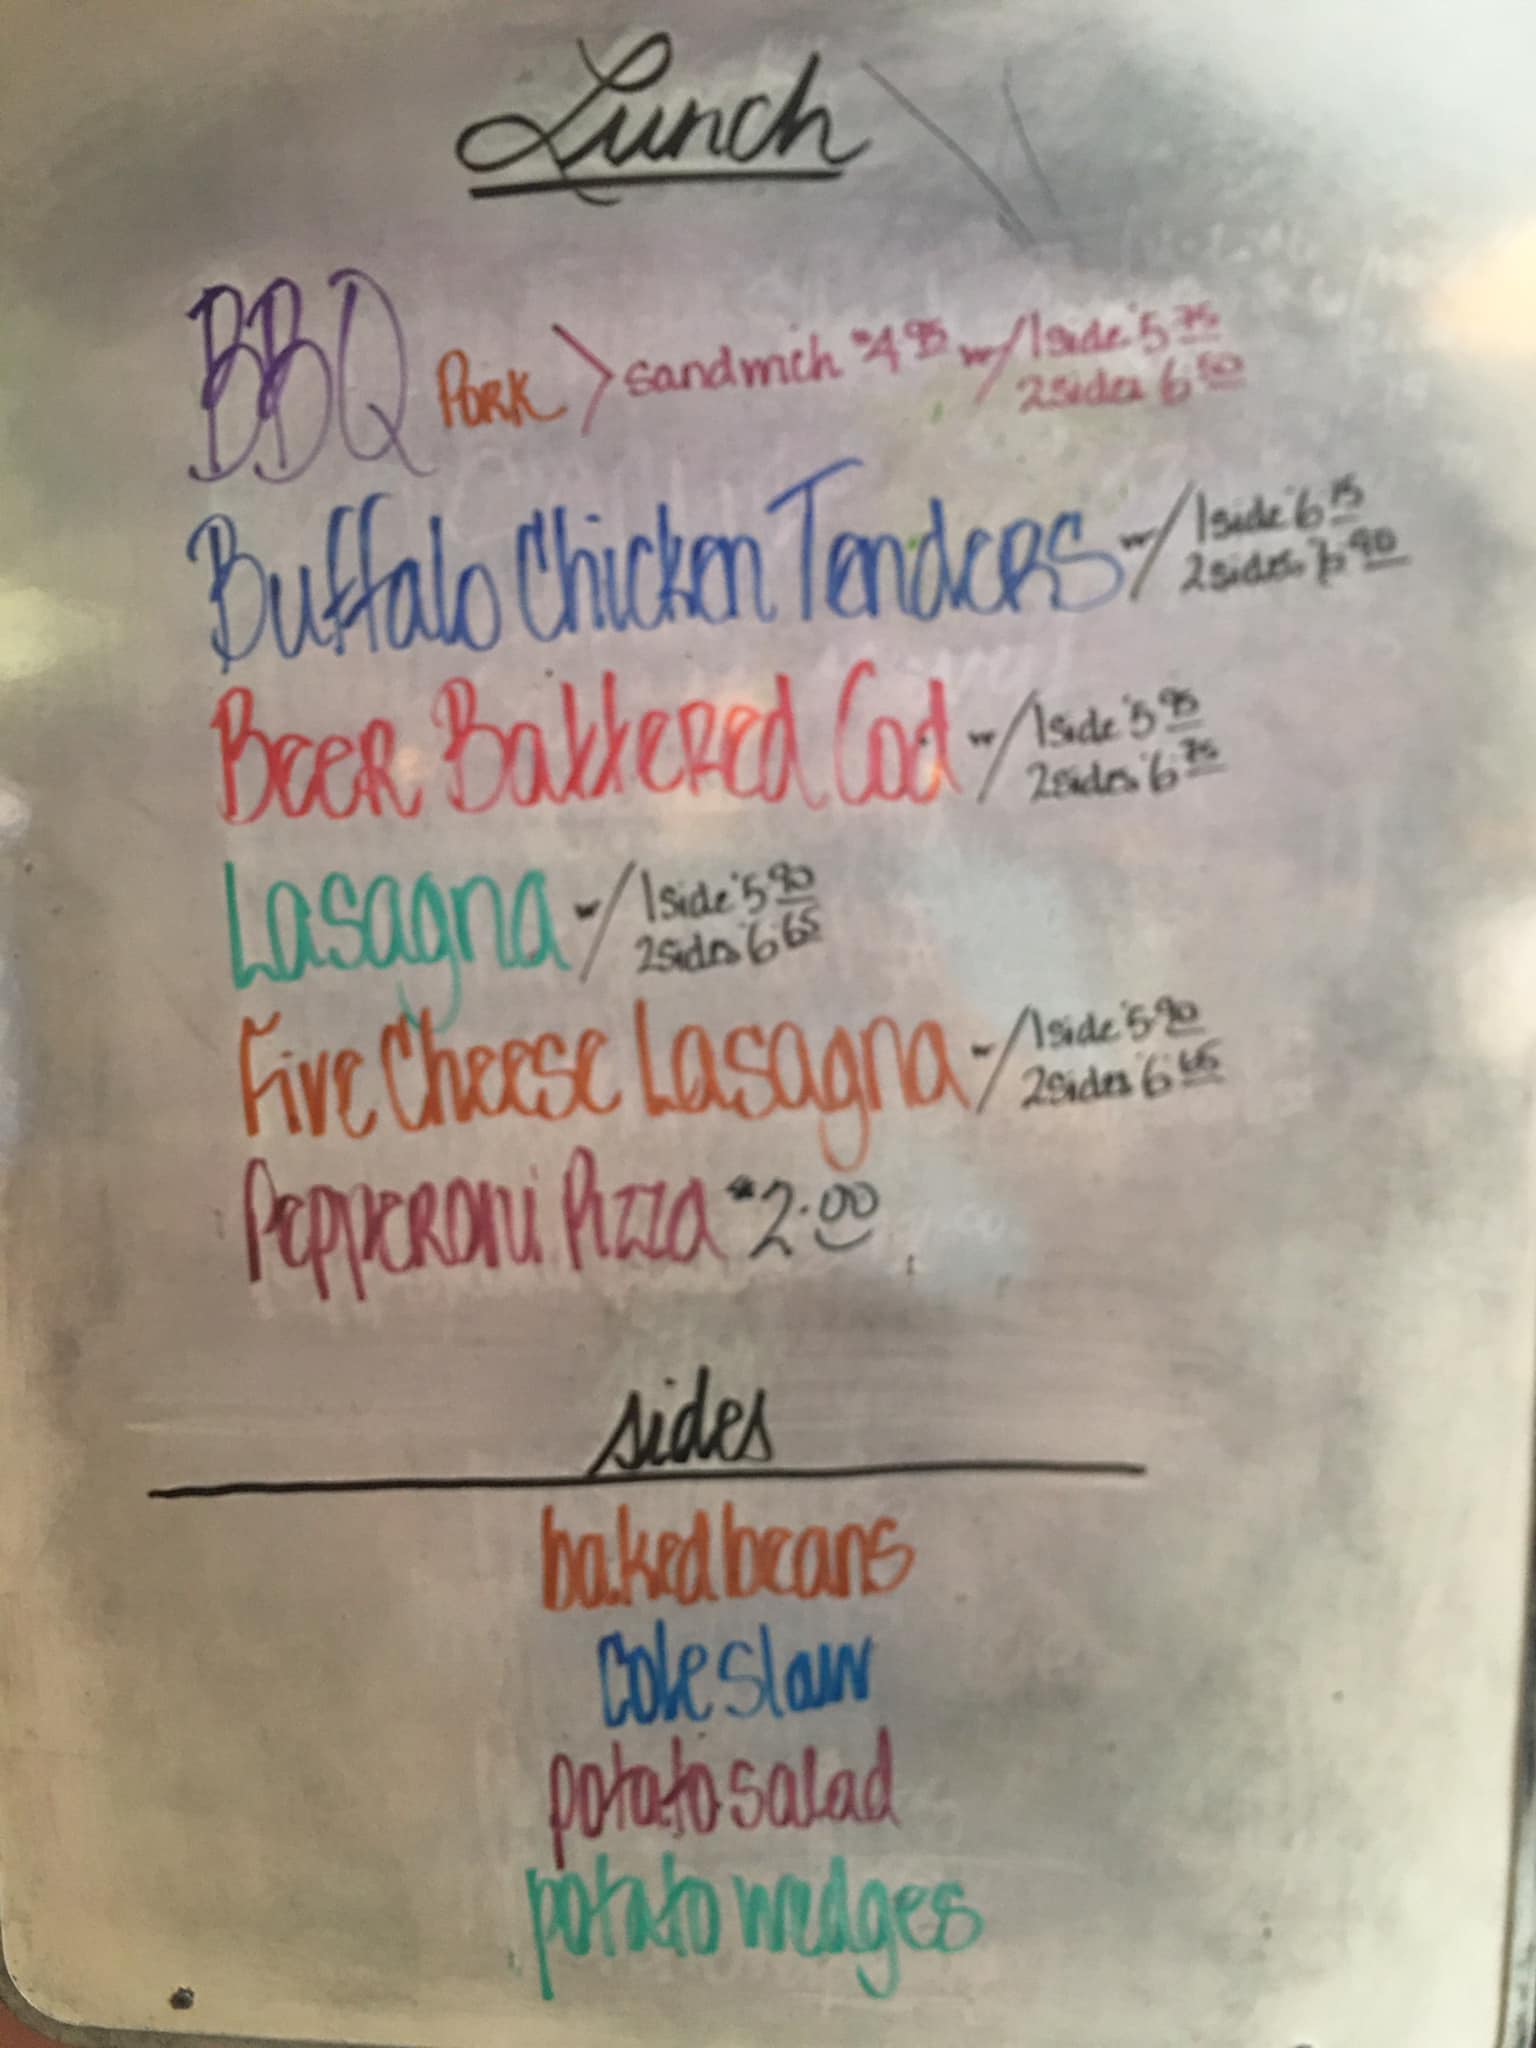 Lunch
BBQ Pork > sandwich $4.95 w/ 1 side 5.75
2 sides 6.50
Buffalo Chicken Tenders w/ 1 side 6.15
2 sides 6.90
Beer Battered Cod w/ 1 side 5.95
2 sides 6.75
Lasagna w/ 1 side 5.90
2 sides 6.65
Five Cheese Lasagna w/ 1 side 5.90
2 sides 6.65
Pepperoni Pizza $2.00
sides
baked beans
cole slaw
potato salad
potato wedges